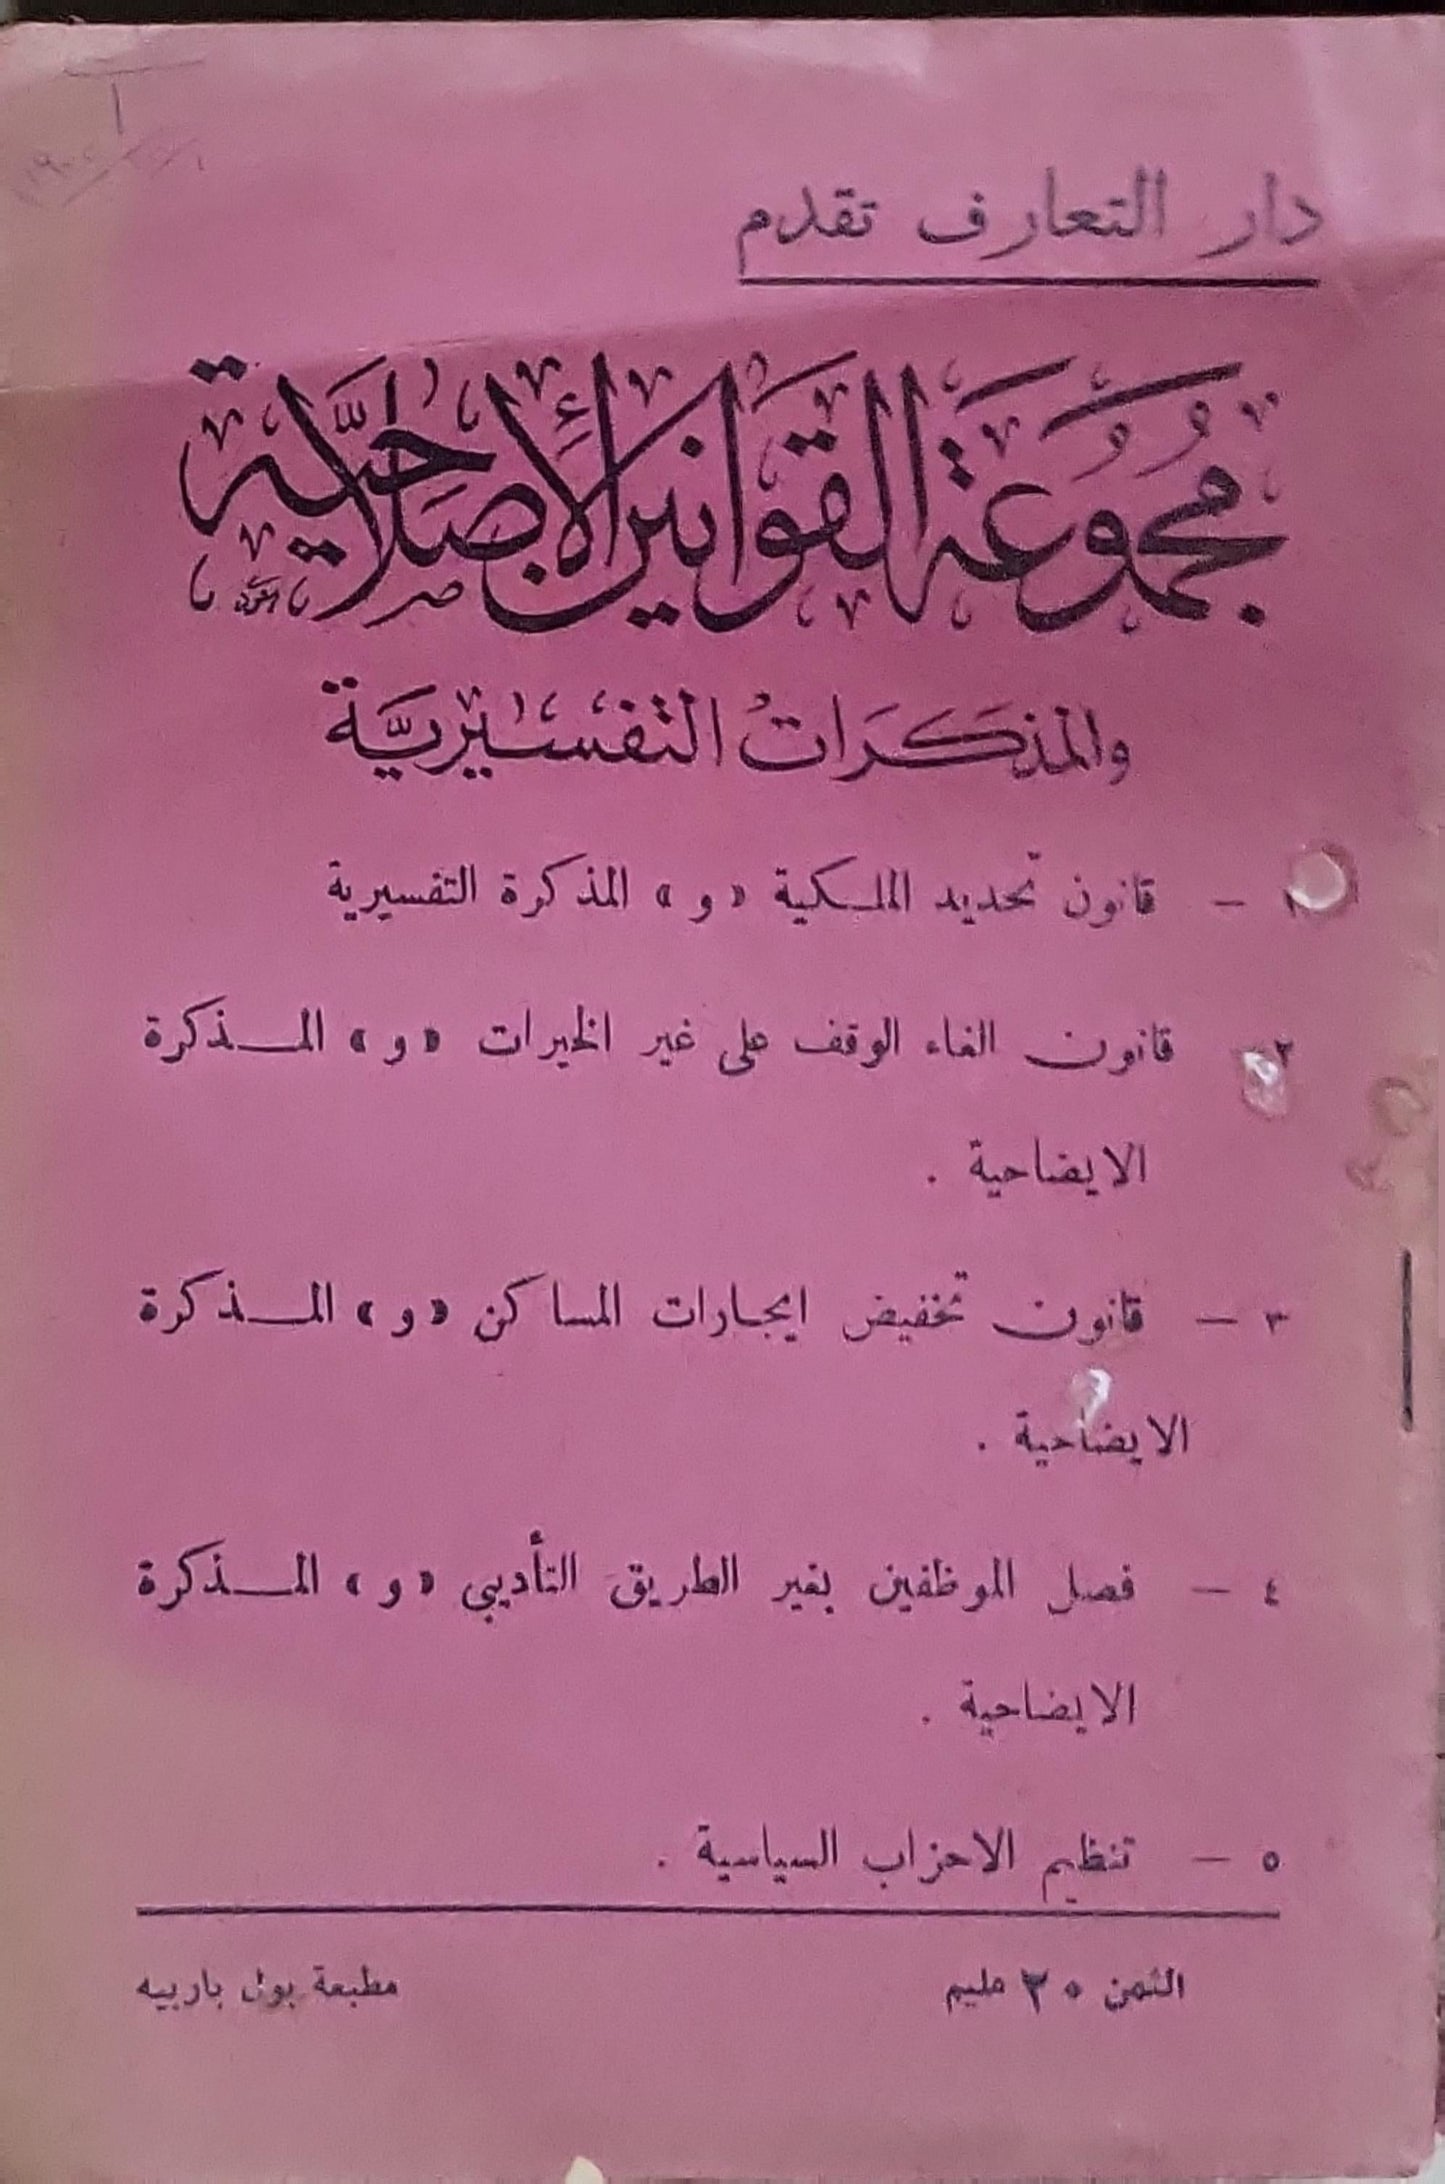 دار التعارف تقدم
مجموعة القوانين الإصلاحية
والمذكرات التفسيرية
١ - قانون تحديد الملكية «و» المذكرة التفسيرية
٢ قانون الغاء الوقف على غير الخيرات «و» المذكرة
الايضاحية .
٣ - قانون تخفيض ايجارات المساكن «و» المذكرة
الايضاحية .
٤ - فصل الموظفين بغير الطريق التأديبى «و» المذكرة
الايضاحية .
٥ - تنظيم الاحزاب السياسية .
الثمن ٣٠ مليم
مطبعة بول باربيه